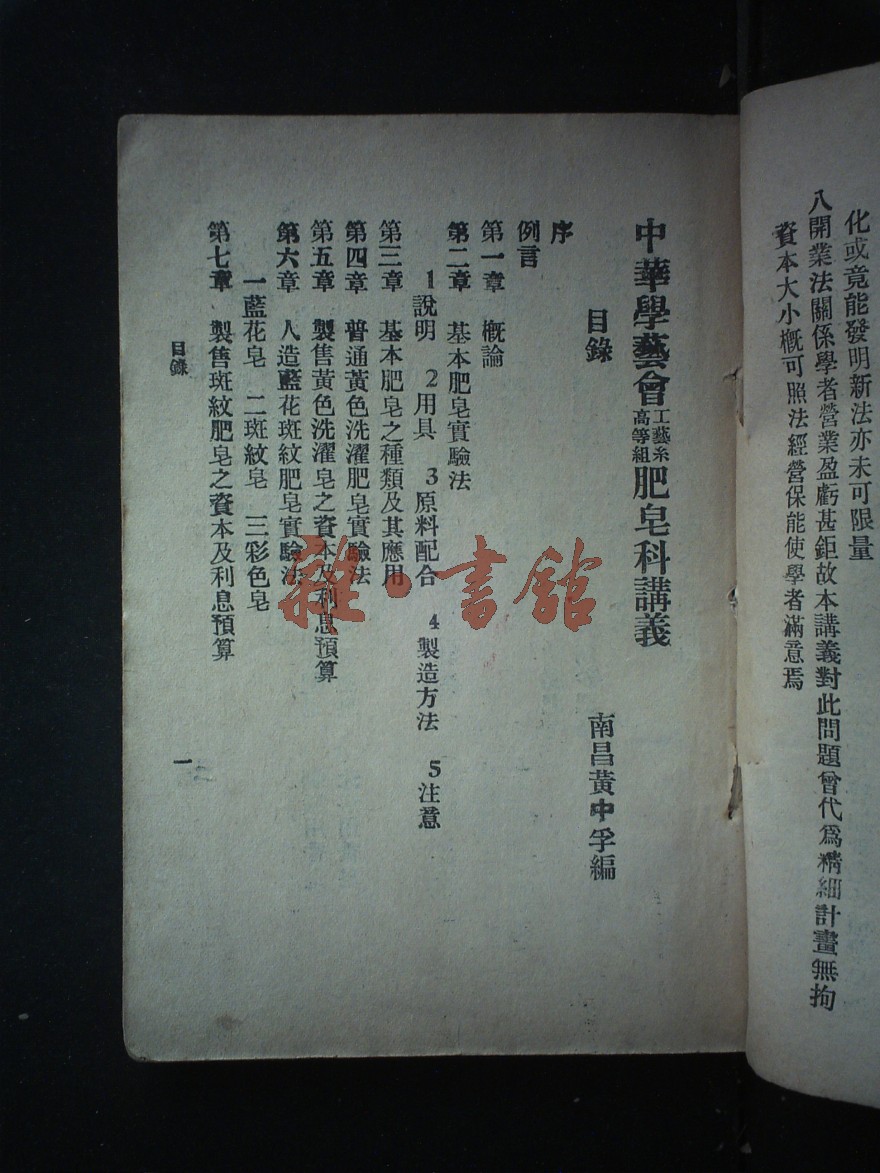 化或竟能發明新法亦未可限量
八開業法關係學者營業盈虧甚鉅故本講義對此問題曾代爲精細計畫無拘
資本大小概可照法經營保能使學者滿意焉
中華學藝會工藝系高等組肥皂科講義
目錄
南昌黃中孚編
序
例言
第一章 概論
第二章 基本肥皂實驗法
1說明 2用具 3原料配合 4製造方法 5注意
第三章 基本肥皂之種類及其應用
第四章 普通黃色洗濯肥皂實驗法
第五章 製售黃色洗濯皂之資本及利息預算
第六章 人造藍花斑紋肥皂實驗法
一藍花皂 二斑紋皂 三彩色皂
第七章 製售斑紋肥皂之資本及利息預算
目錄
一
雜·書館